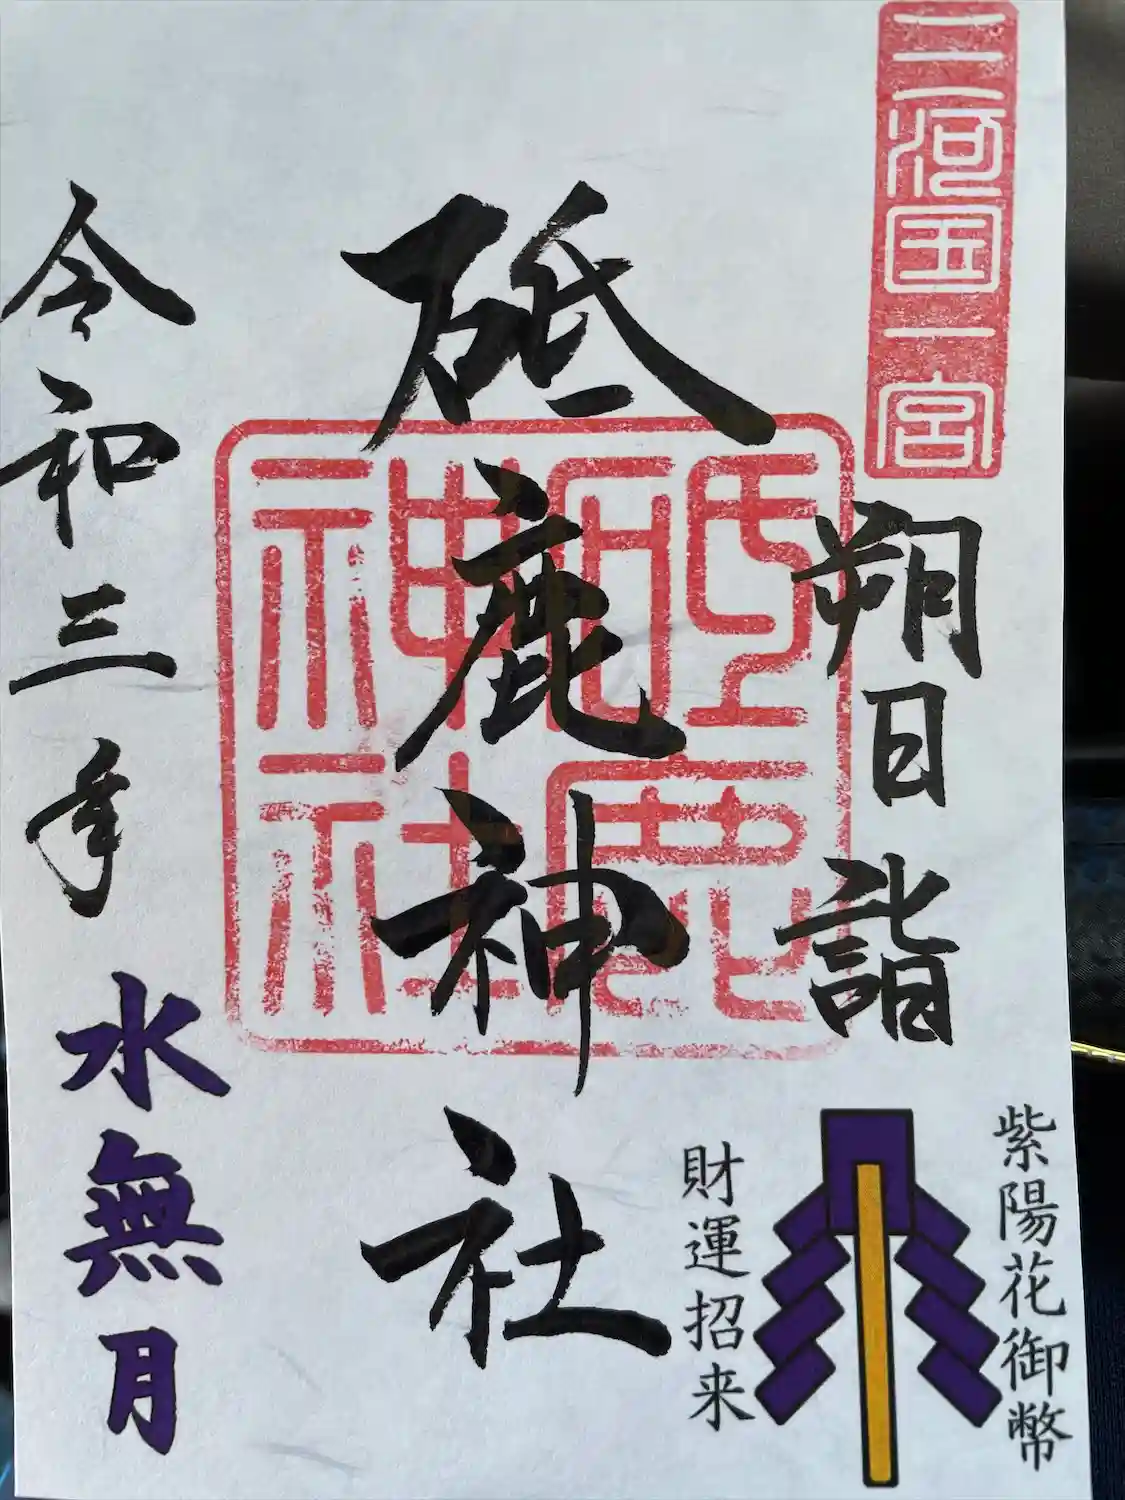 三河国一宮
朔日詣
紫陽花御幣
財運招来
砥鹿神社
砥鹿神社
令和三年
水無月